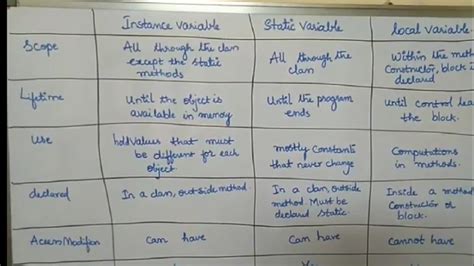 Instance Variable Static Variable Local Variable
Scope
All through the class
except the static
methods
All through the
class
Within the meth
Constructor, block i
declared
Lifetime
Until the object is
available in memory
Until the program
ends
until control lea
the block.
Use
hold values that must
be different for each
object.
mostly Constants
that never change
Computations
in methods.
declared
In a class, outside method.
In a class, outside
method. Must be
declared static
Inside a method
Constructor or
block.
Access Modifier
can have
can have
cannot have